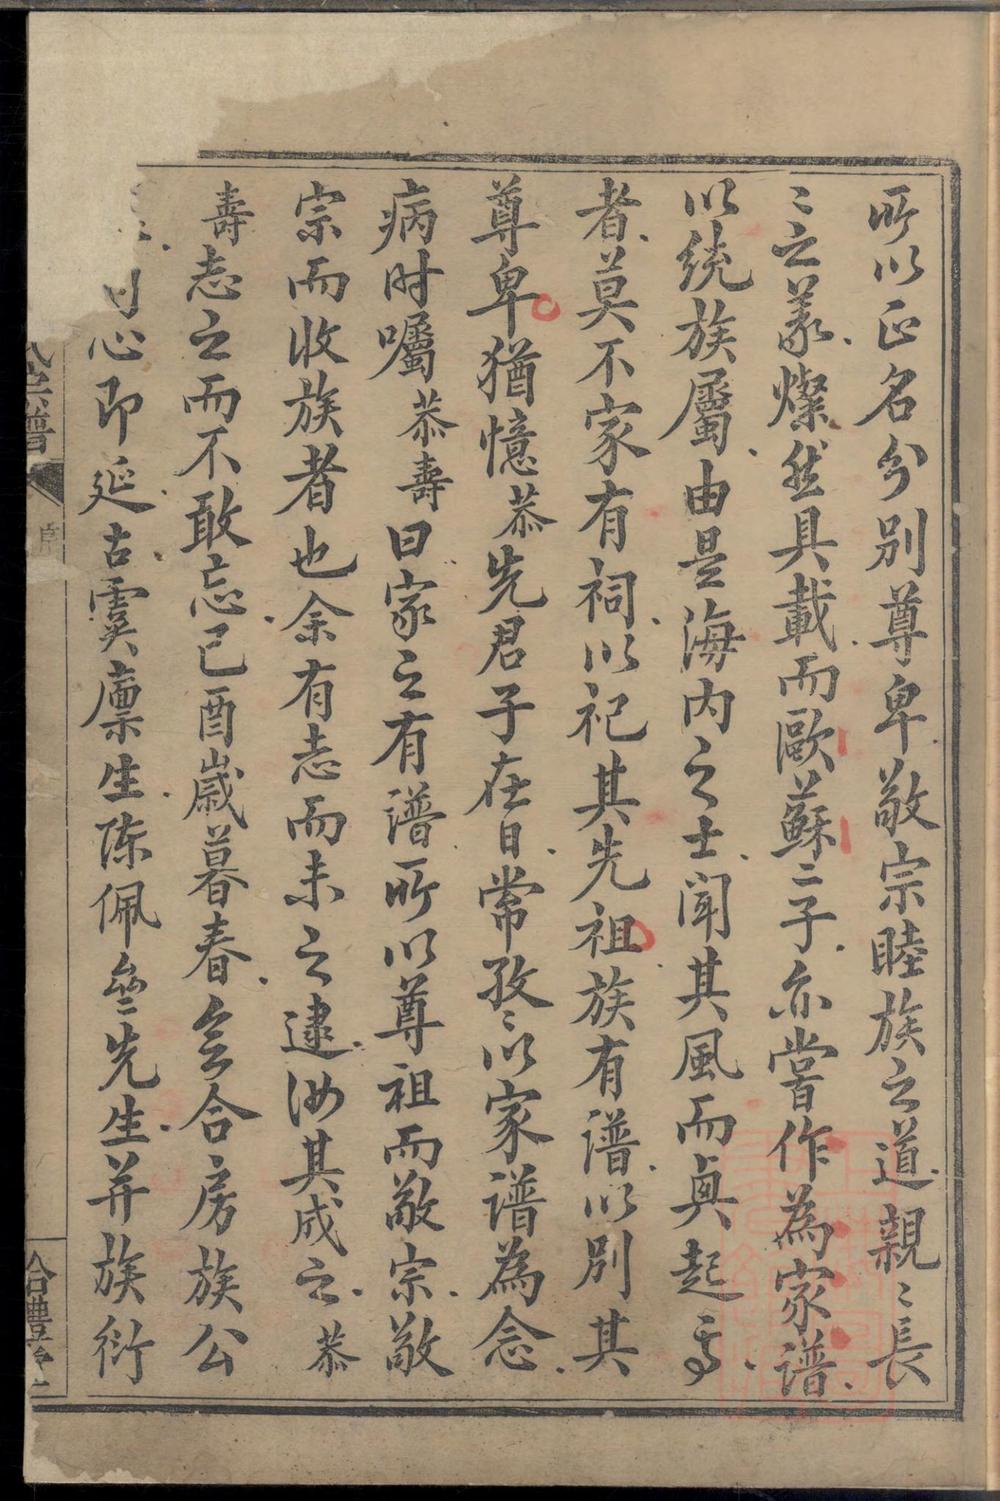 所以正名分别尊卑敬宗睦族之道親〻長
〻之義燦然具載而歐蘇二子亦嘗作為家譜
以統族屬由是海内之士聞其風而興起焉
者莫不家有祠以祀其先祖族有譜以别其
尊卑猶憶恭先君子在日常孜〻以家譜為念
病时囑恭壽曰家之有譜所以尊祖而敬宗敬
宗而收族者也余有志而未之逮汝其成之恭
壽志之而不敢忘己酉歲暮春会合房族公
心即延古虞廪生陈佩叅先生并族衍
宗譜